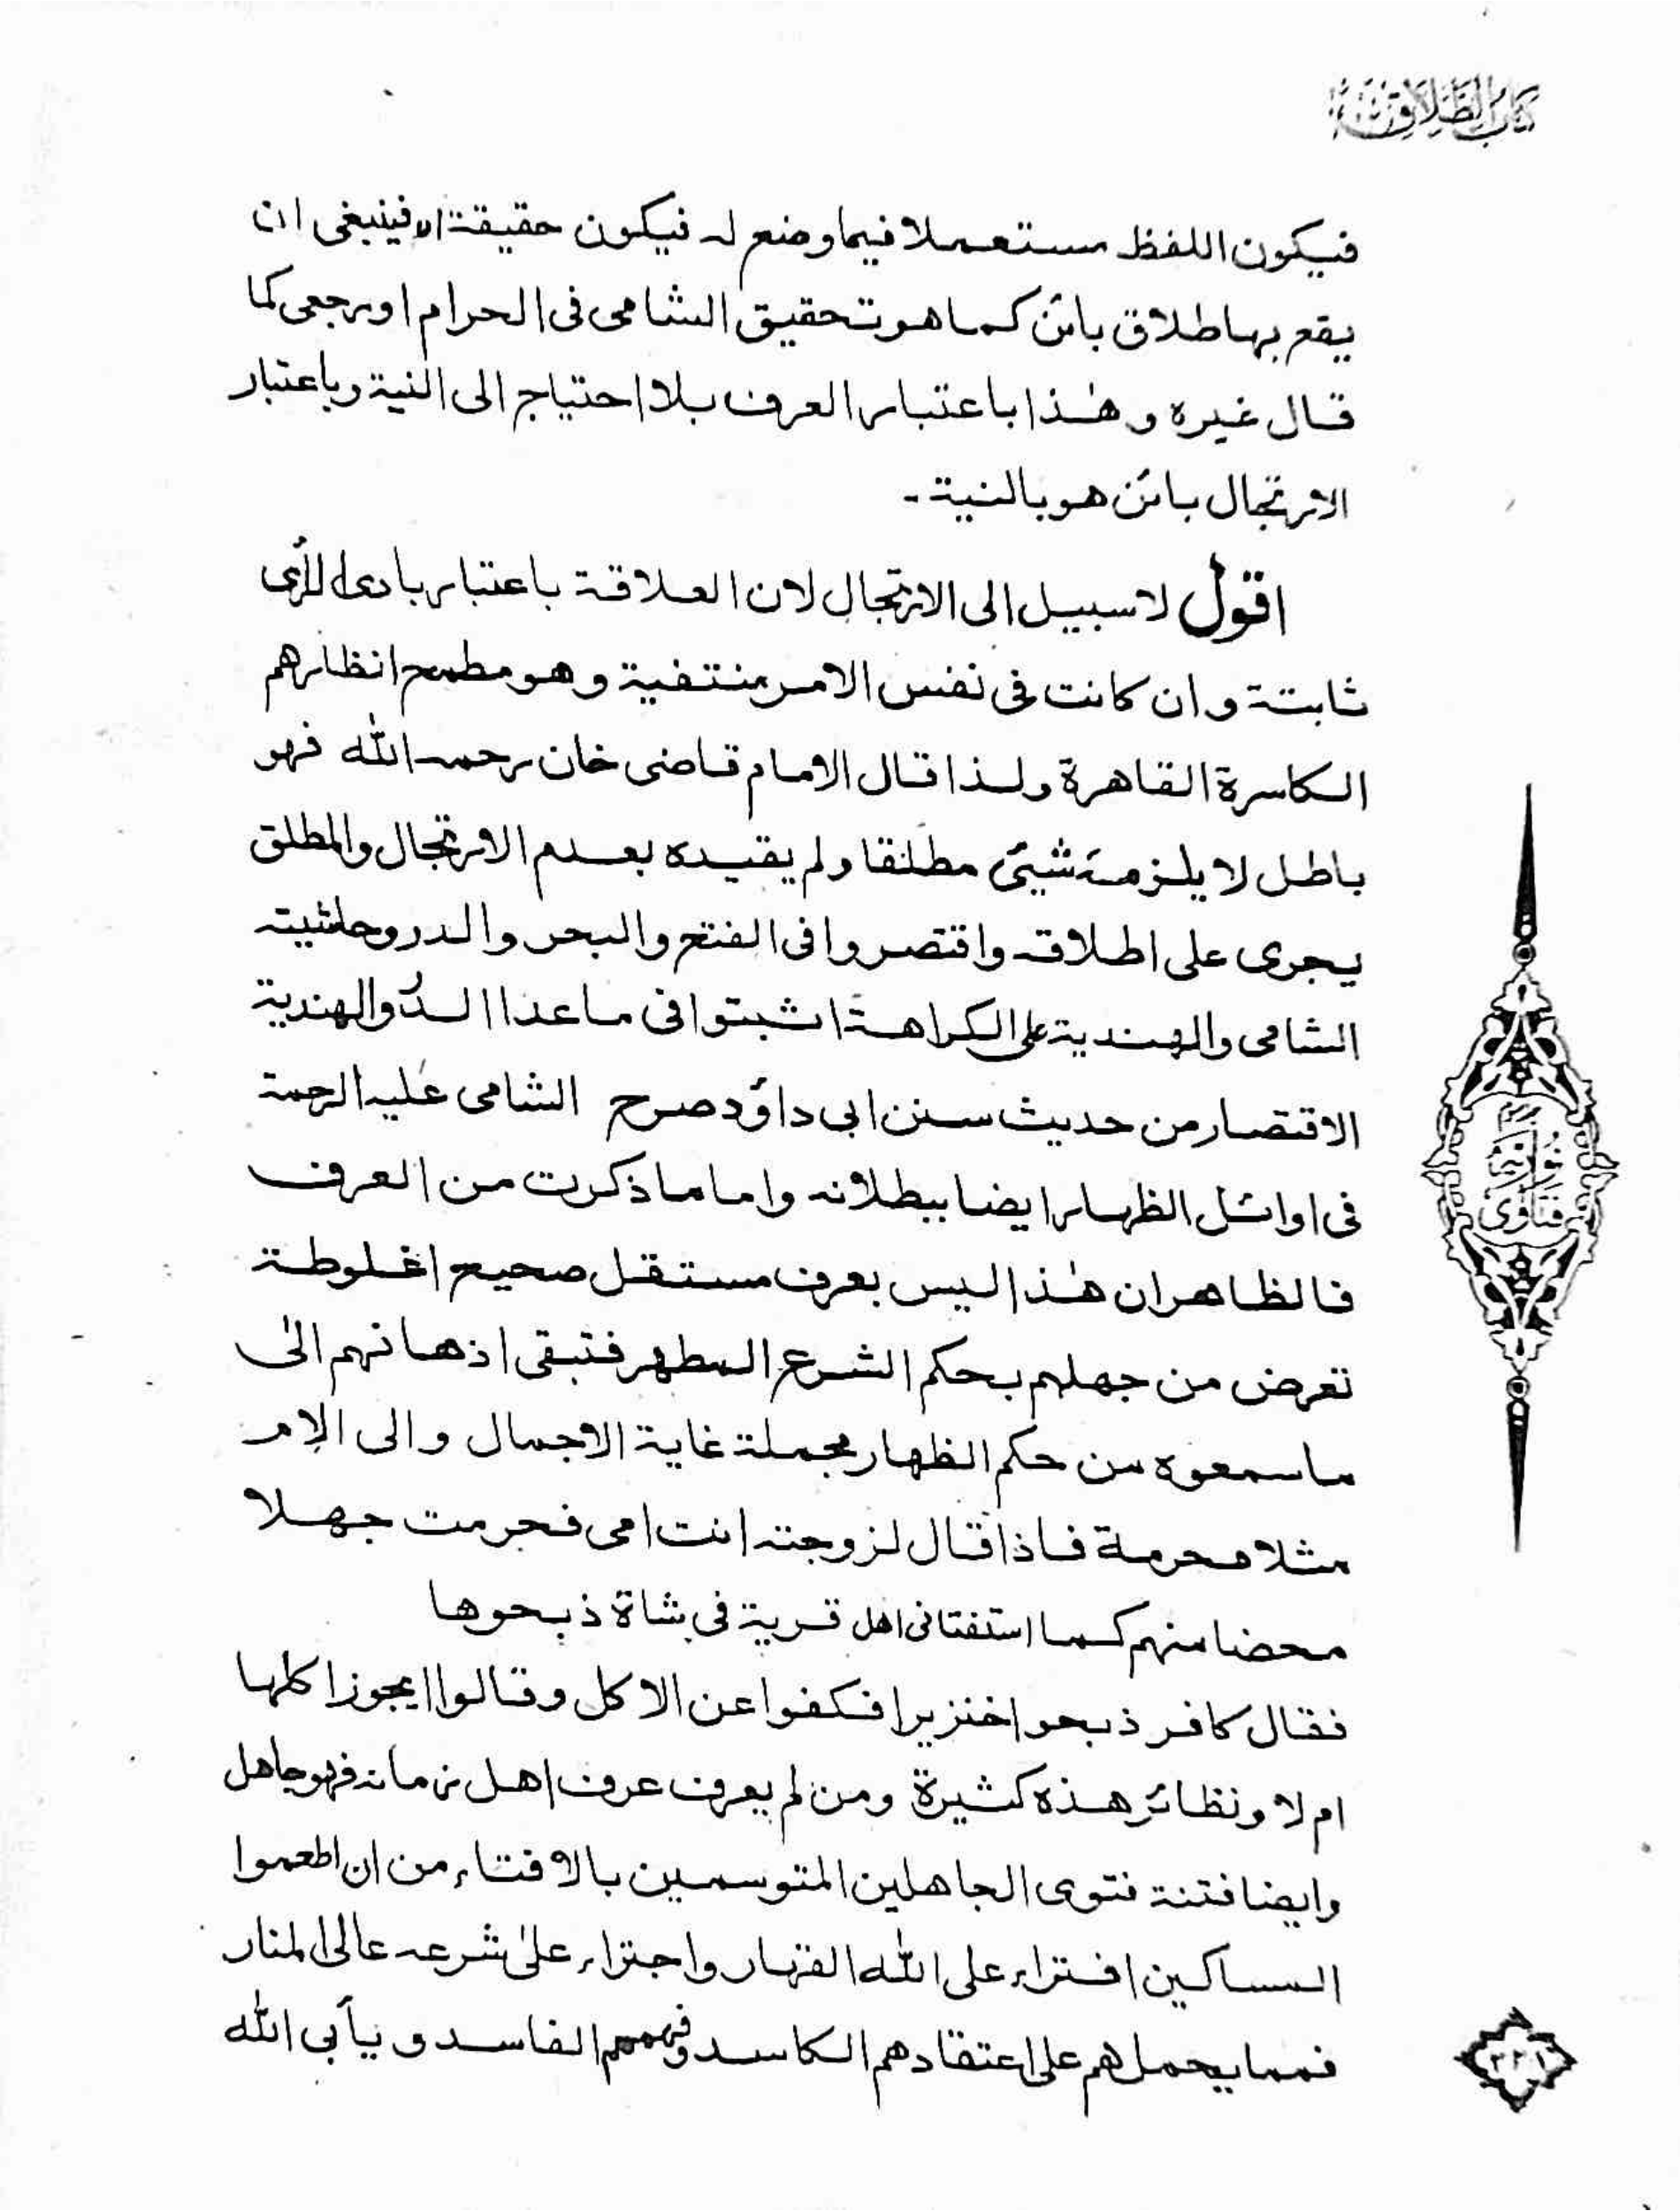 كتاب الطلاق
فيكون اللفظ مستعملا فيما وضع له فيكون حقيقة فينبغى ان
يقع بها طلاق بائن كما هو تحقيق الشامى فى الحرام او رجعى كما
قال غيره و هٰذا باعتبار العرف بلا احتياج الى النية و باعتبار
الارتجال بائن هو بالنية ـ
اقول لا سبيل الى الارتجال لان العلاقة باعتبار بادى الرأى
ثابتة و ان كانت فى نفس الامر منتفية و هو مطمح انظارهم
الكاسرة القاهرة ولذا قال الامام قاضى خان رحمه الله فهو
باطل لا يلزمه شيئ مطلقا و لم يقيده بعدم الارتجال والمطلق
يجرى على اطلاقه واقتصروا فى الفتح والبحر والدر وحاشيته
الشامى والهندية على الكراهة اثبتوا فى ما عدا الدُر والهندية
الاقتصار من حديث سنن ابى داؤد صرح الشامى عليه الرحمة
فى اوائل الظهار ايضا ببطلانه واما ما ذكرت من العرف
فالظاهر ان هٰذا ليس بعرف مستقل صحيح اغلوطة
تعرض من جهلهم بحكم الشرع المطهر فتبقى اذهانهم الىٰ
ما سمعوه من حكم الظهار مجملة غاية الاجمال و الى الام
مثلا محرمة فاذا قال لزوجته انت امى فحرمت جهلا
محضا منهم كما استفتانى اهل قرية فى شاة ذبحوها
فقال كافر ذبحوا خنزيرا فكفوا عن الاكل و قالوا ايجوز اكلها
ام لا و نظائر هذه كثيرة و من لم يعرف عرف اهل زمانه فهو جاهل
وايضا فتنة فتوى الجاهلين المتوسمين بالافتاء من ان اطعموا
المساكين افتراء على الله القهار واجتراء علىٰ شرعه عالى المنار
فمما يحملهم على اعتقادهم الكاسد وفهمهم الفاسد و يأبى الله
فتاوى نوريه
٣٢١